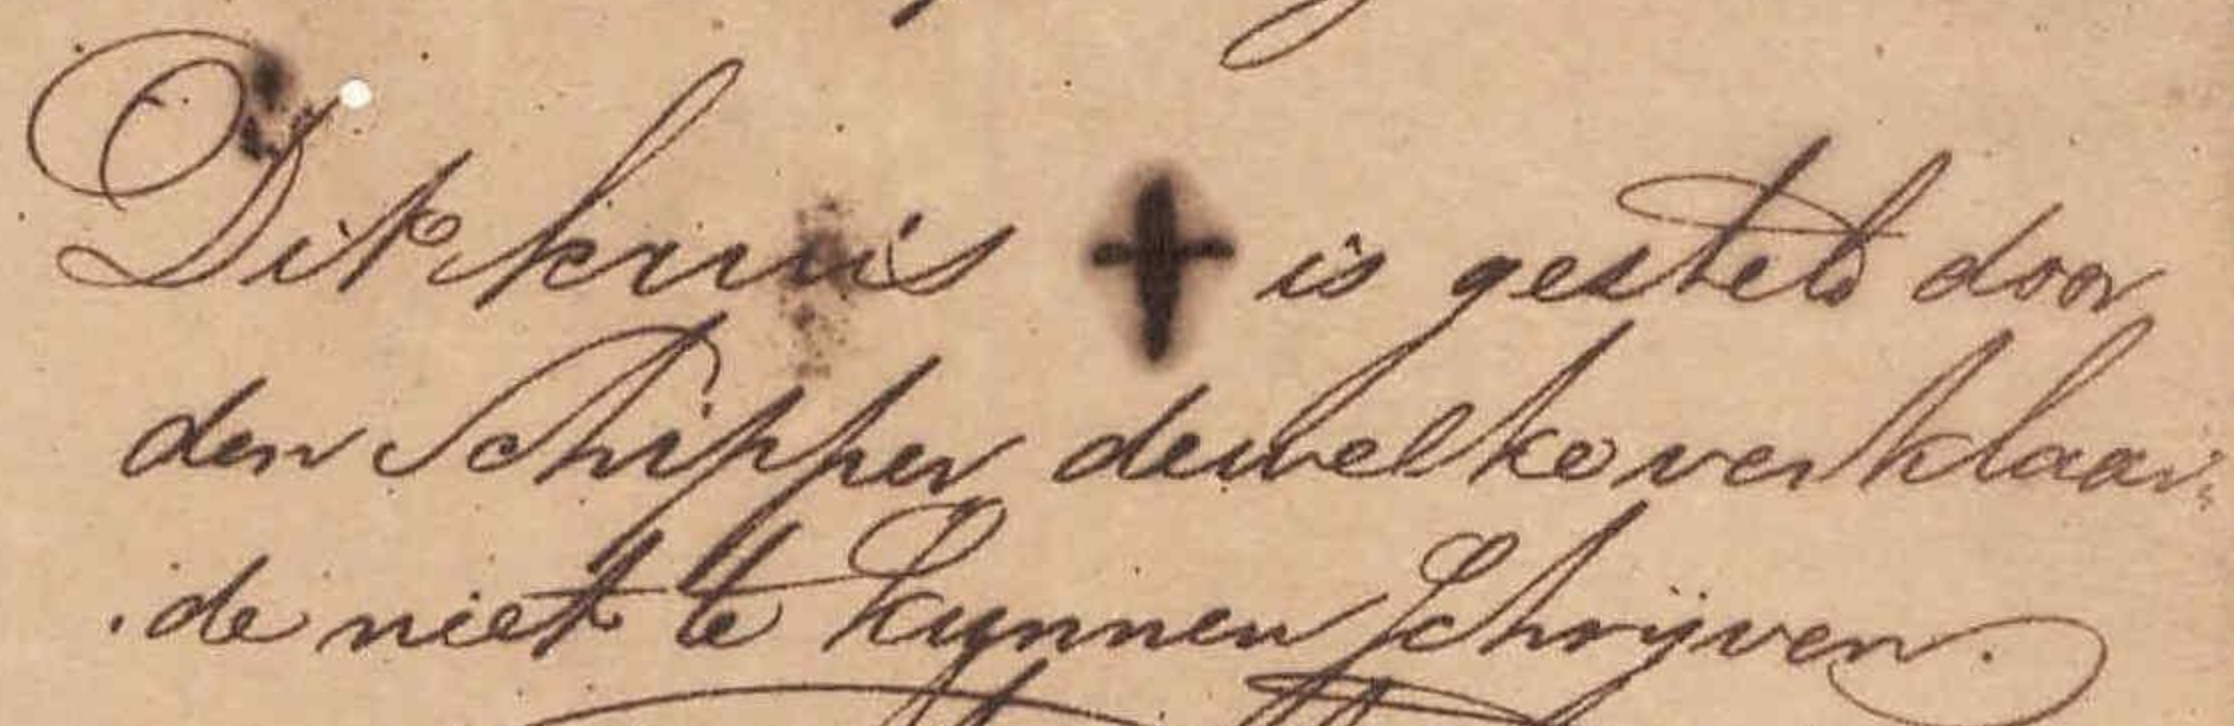 Dit kruis + is gesteld door
den Schipper dewelke verklaar:
.de niet te kunnen schrijven.